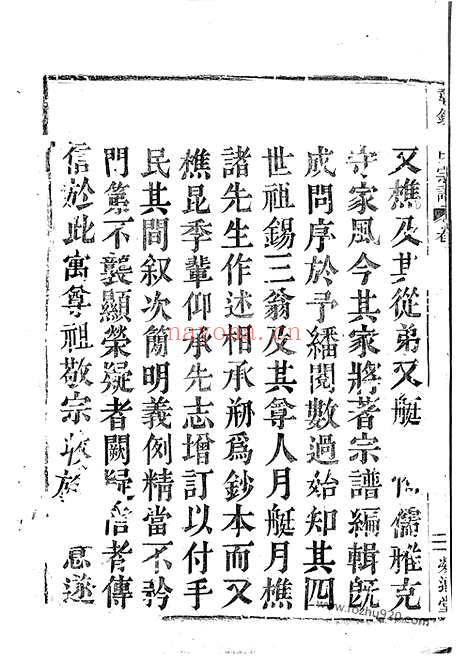 又樵及其從弟又艇儒雅克
守家風今其家將著宗譜編輯既
成問序於予繙閱數過始知其四
世祖錫三翁及其尊人月艇月樵
諸先生作述相承剙爲鈔本而又
樵昆季輩仰承先志增訂以付手
民其間叙次簡明義例精當不矜
門第不襲顯榮疑者闕疑信者傳
信於此寓尊祖敬宗收族意遂
宗譜
卷
二
堂
nayona.cn
www.fozhu920.com